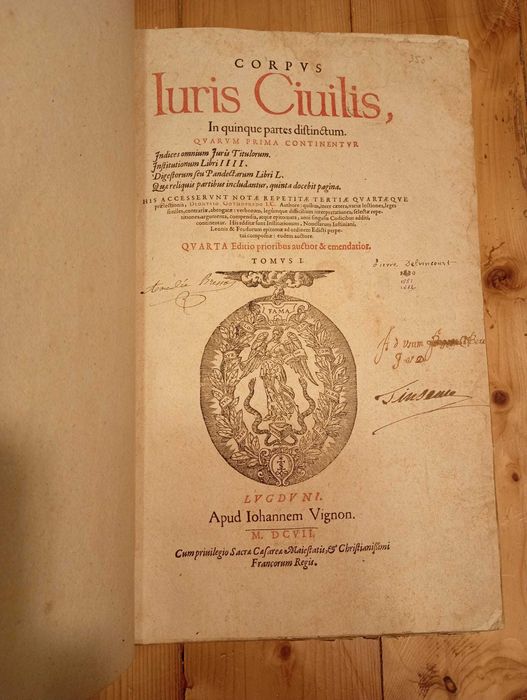 350
CORPVS
Iuris Ciuilis,
In quinque partes distinctum.
QVARVM PRIMA CONTINENTVR
Indices omnium Iuris Titulorum.
Institutionum Libri IIII.
Digestorum seu Pandectarum Libri L.
Quæ reliquis partibus includantur, quinta docebit pagina.
HIS ACCESSERVNT NOTÆ REPETITÆ TERTIÆ QVARTÆQVE
prælectionis, DIONYSIO GOTHOFREDO I.C. Authore: quibus, inter cætera, variæ lectiones, leges
similes, contrariæ, abrogatæ: verborum, legúmque difficilium interpretationes,
continentur. His additæ sunt Institutionum, Novellarum Iustiniani,
Leonis & Feudorum epitomæ ad ordinem Edicti perpetui
compositæ: eodem auctore.
QVARTA Editio prioribus auctior & emendatior.
TOMVS I.
Pierre
Amedée
FAMA
Ad usum
LVGDVNI.
Apud Iohannem Vignon.
M. DCVII.
Cum privilegio Sacræ Cæsareæ Maiestatis, & Christianissimi
Francorum Regis.